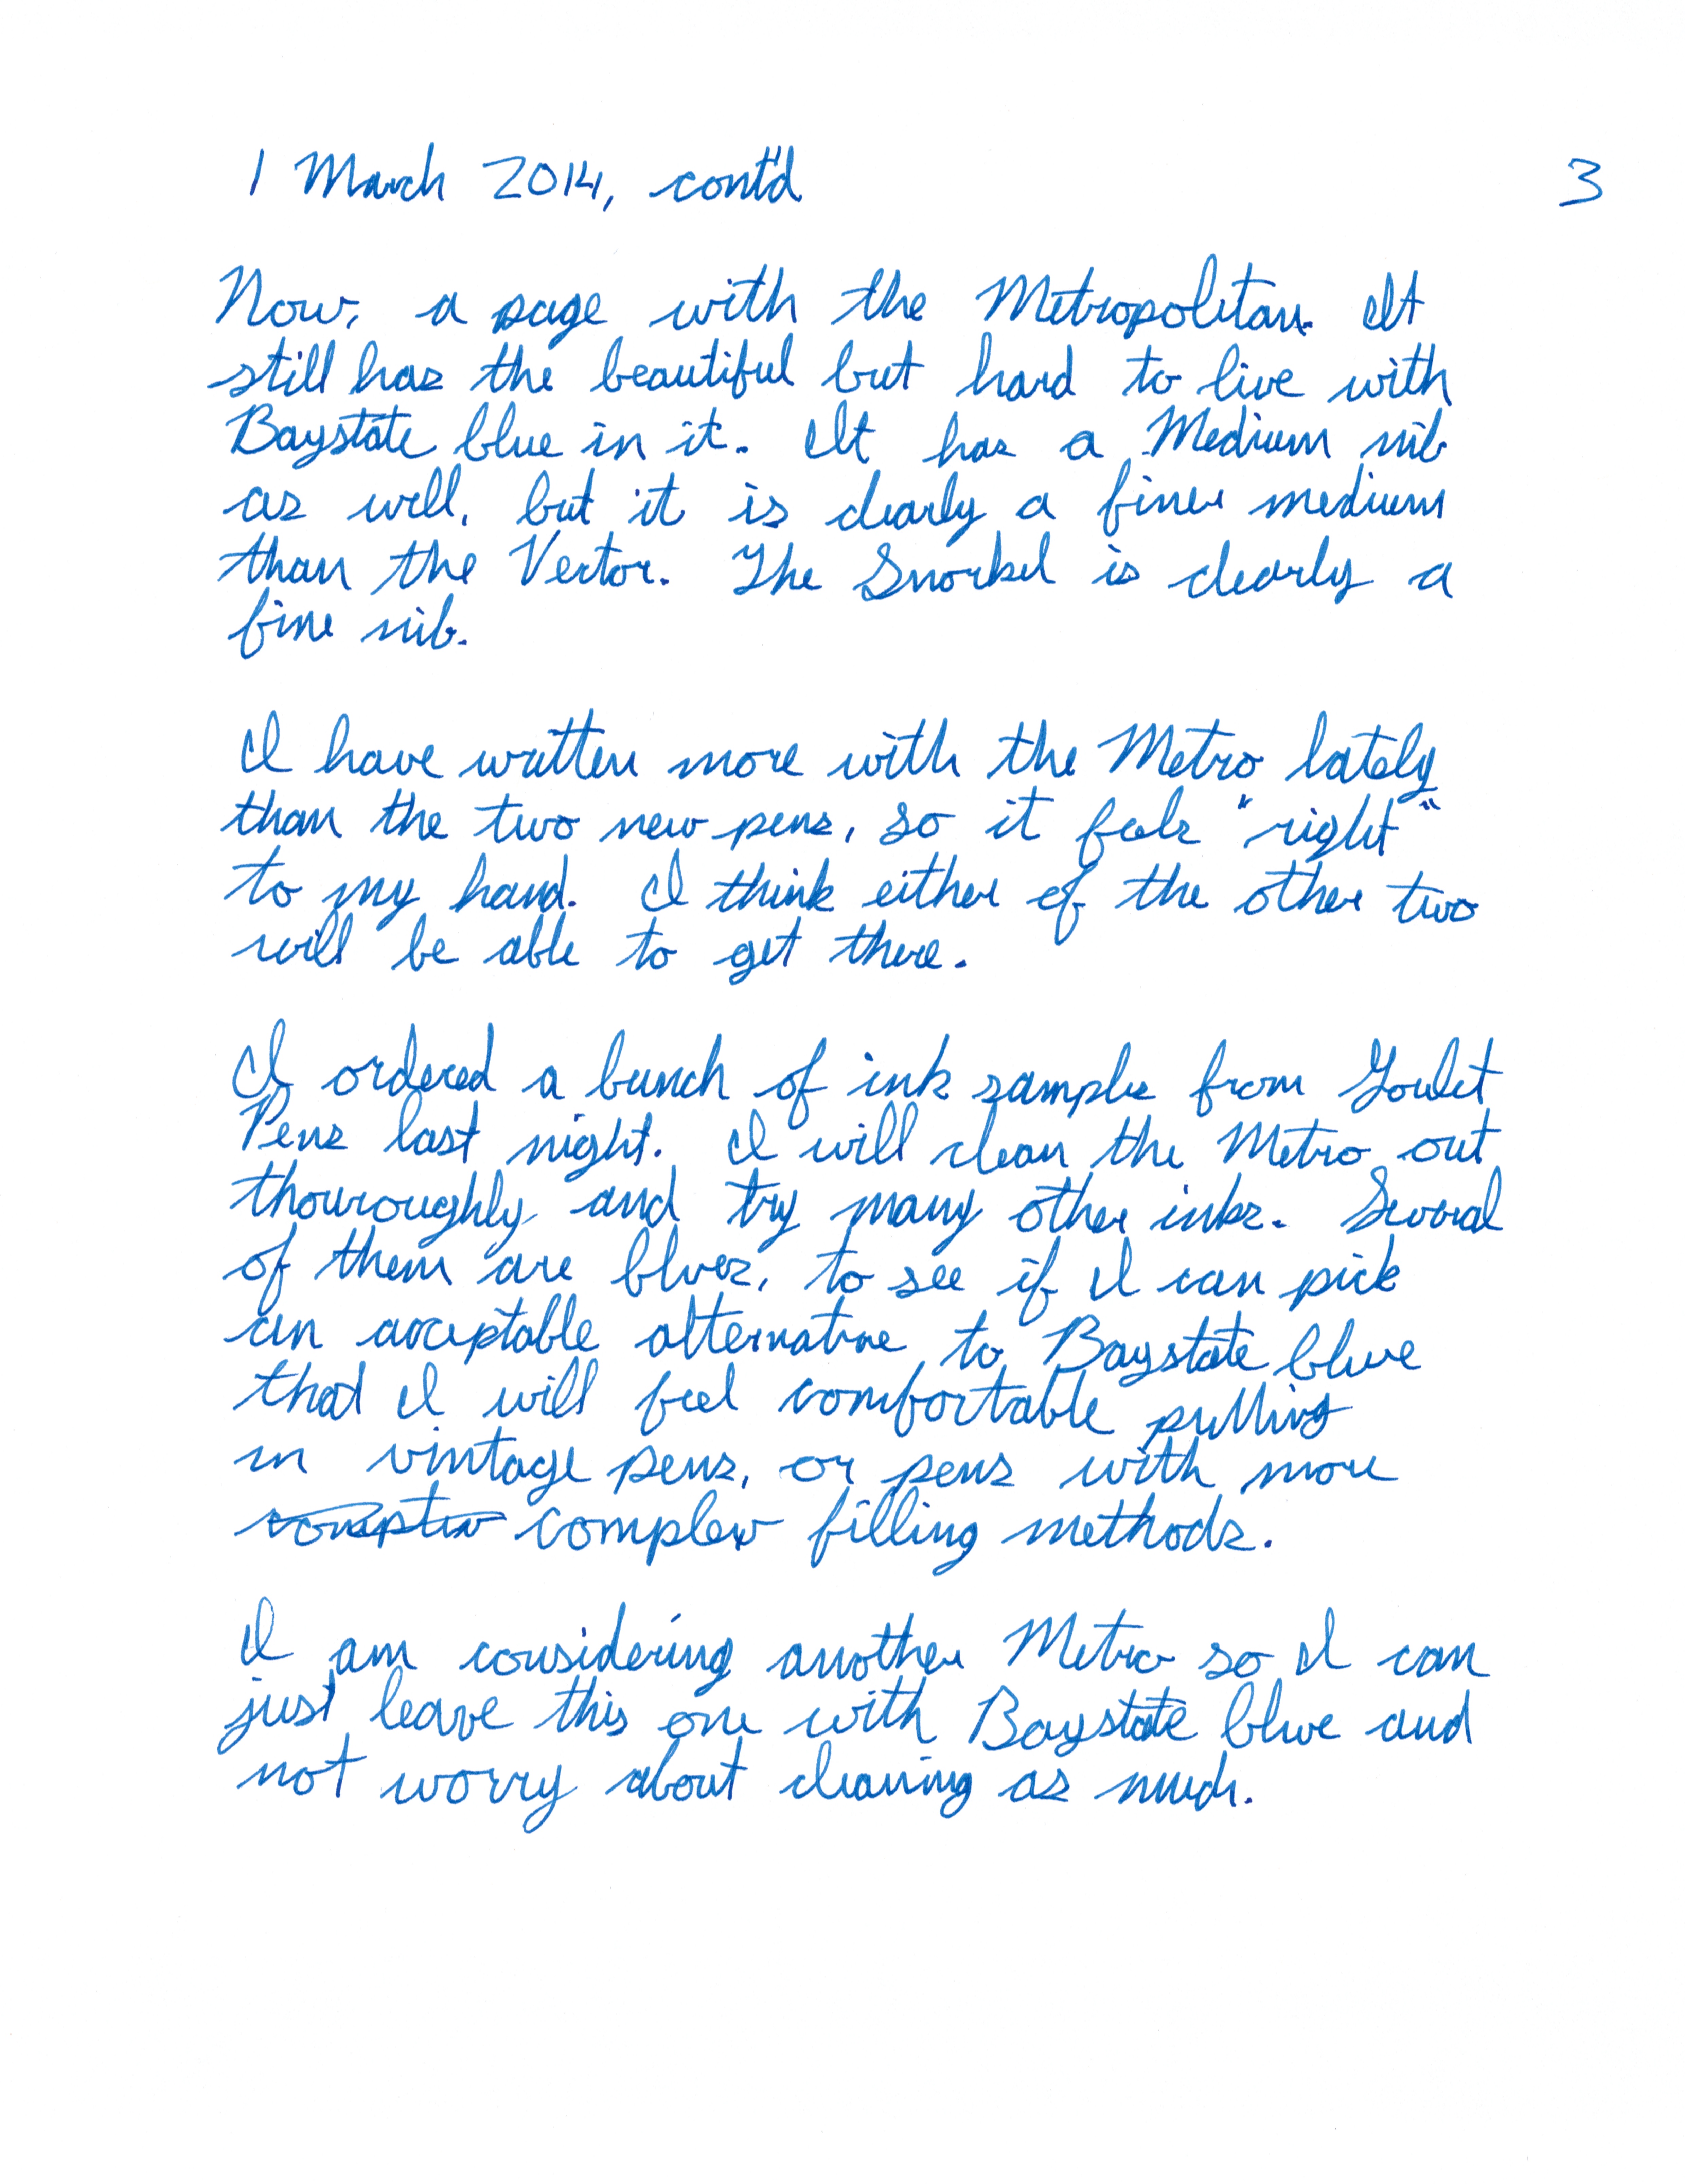 1 March 2014, cont'd
3
Now, a page with the Metropolitan. It
still has the beautiful but hard to live with
Baystate blue in it. It has a Medium nib
as well, but it is clearly a finer medium
than the Vector. The Snorkel is clearly a
fine nib.
I have written more with the Metro lately
than the two new pens, so it feels "right"
to my hand. I think either of the other two
will be able to get there.
I ordered a bunch of ink samples from Goulet
Pens last night. I will clean the Metro out
thouroughly and try many other inks. Several
of them are blues, to see if I can pick
an acceptable alternative to Baystate blue
that I will feel comfortable putting
in vintage pens, or pens with more
complex filling methods.
I am considering another Metro so I can
just leave this one with Baystate blue and
not worry about cleaning as much.